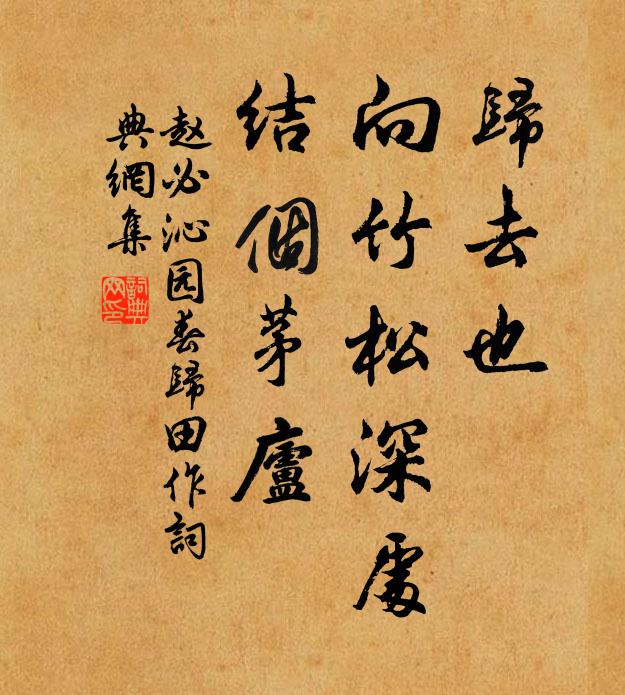 歸去也
向竹松深處
結個茅廬
赵必沁园春歸田作詞
典網集
詞典網印